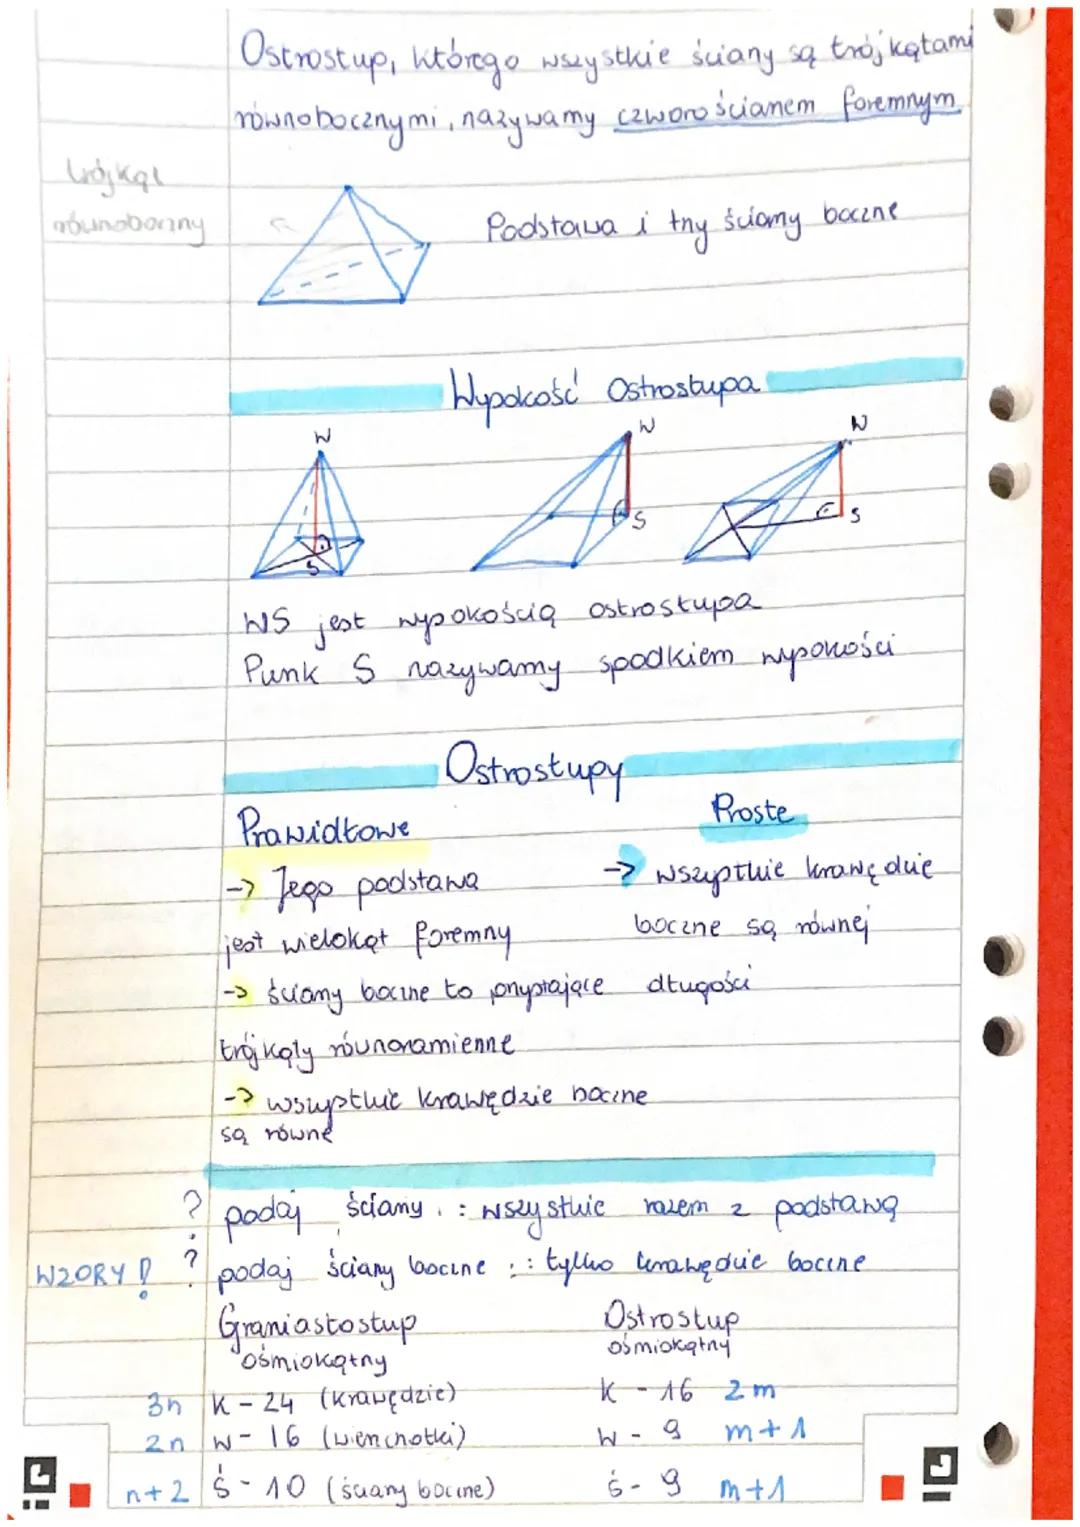 Ostrosłup, którego wszystkie ściany są trójkątami
równobocznymi, nazywamy czworościanem foremnym
trójkąt
równoboczny
Podstawa i trzy ściany boczne
Wysokość Ostrosłupa
W
W
W
S
S
S
WS jest wysokością ostrosłupa
Punk S nazywamy spodkiem wysokości
Ostrosłupy
Prawidłowe
Proste
-> Jego podstawa
jest wielokąt foremny
-> ściany boczne to przystające
trójkąty równoramienne
-> wszystkie krawędzie boczne
są równe
-> wszystkie krawędzie
boczne są równej
długości
? podaj ściany : wszystkie razem z podstawą
WZORY ! ? podaj ściany boczne : tylko krawędzie boczne
Graniastosłup
ośmiokątny
3n K - 24 (krawędzie)
2n W - 16 (wierzchołki)
n+2 ś - 10 (ściany boczne)
Ostrosłup
ośmiokątny
K - 16 2m
W - 9 m+1
ś - 9 m+1